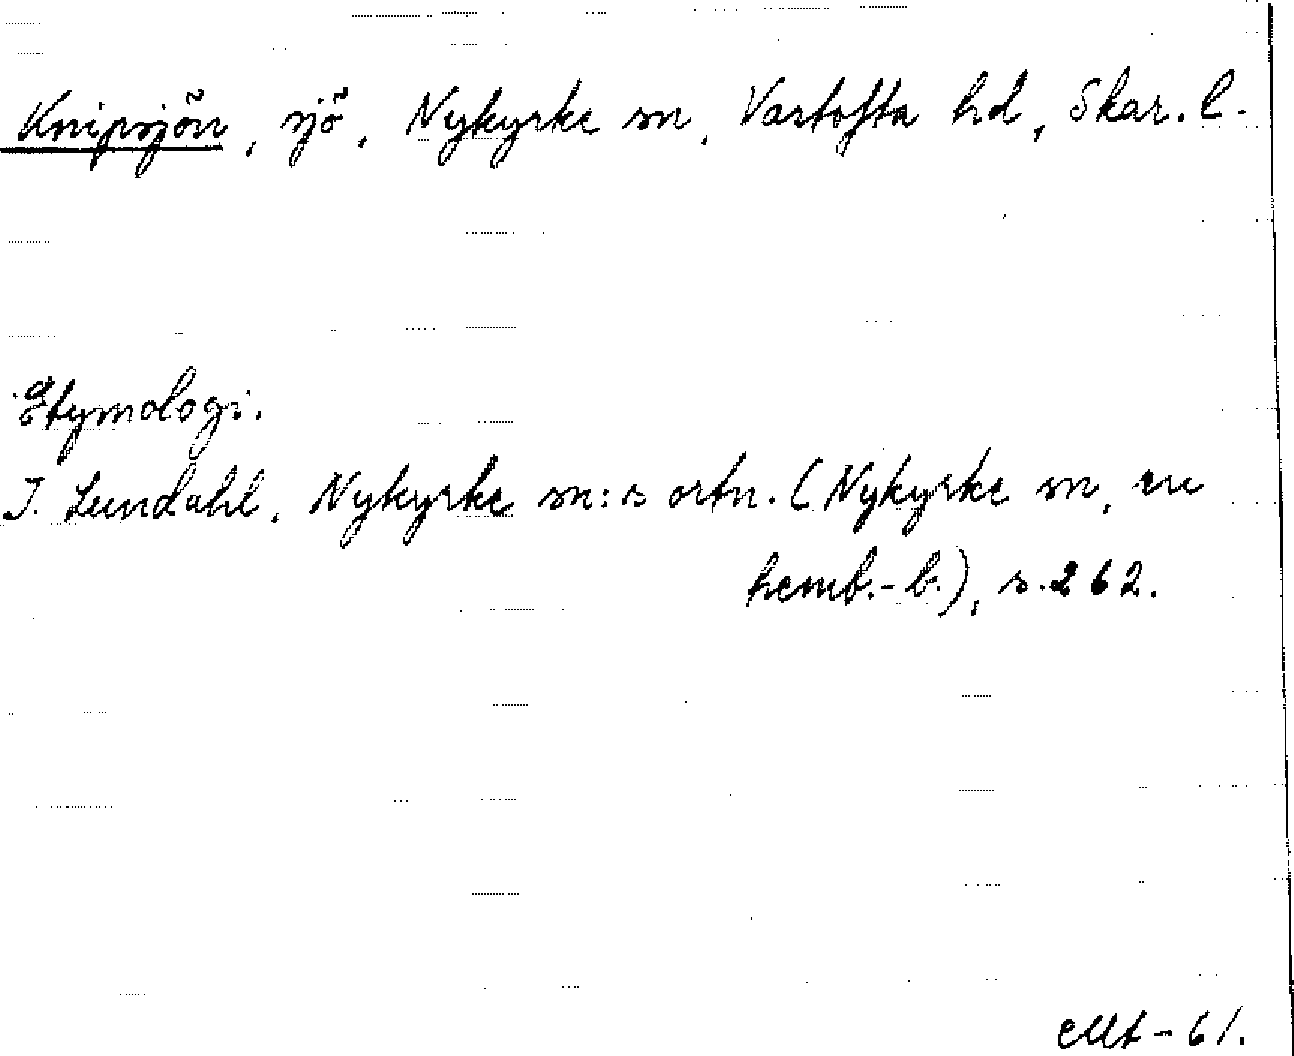 Knipsjön, sjö, Nykyrke sn, Vartofta hd, Skar. l.
Etymologi.
I. Lundahl, Nykyrke sn:s ortn. (Nykyrke sn, en
hemb.-b.), s. 262.
-61.